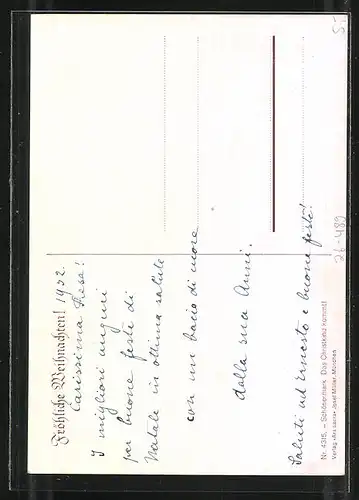 Fröhliche Weihnachten! 1932.
Carissima Resa!
I migliori auguri
per buone feste di
Natale in ottima salute
con un bacio di more
dalla sua Anni.
Saluti ad Ernesto e buone feste!
Nr. 4315. – Schiestl: Das Christkind kommt!
Verlag »Ars sacra« Josef Müller, München
26-489